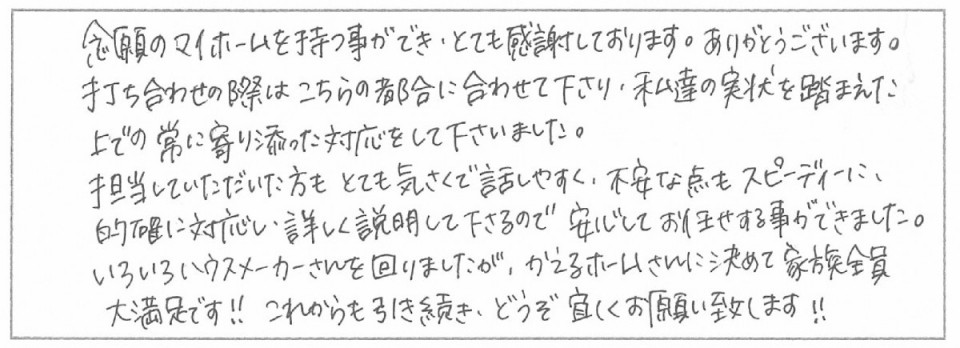 念願のマイホームを持つ事ができ、とても感謝しております。ありがとうございます。
打ち合わせの際はこちらの都合に合わせて下さり、私達の実状を踏まえた
上での常に寄り添った対応をして下さいました。
担当していただいた方もとても気さくで話しやすく、不安な点もスピーディーに、
的確に対応し、詳しく説明して下さるので安心してお任せする事ができました。
いろいろハウスメーカーさんを回りましたが、かえるホームさんに決めて家族全員
大満足です!! これからも引き続き、どうぞ宜しくお願い致します!!